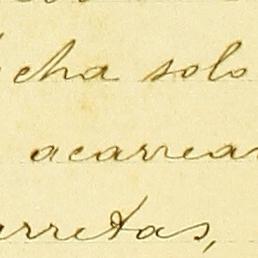 cha solo
acarrea
rretas,